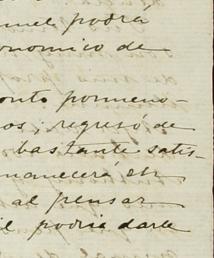 podrá
onomico de
onto pormeno-
os; regresó de
bastante satis-
manecerá en
al pensar
podria darle